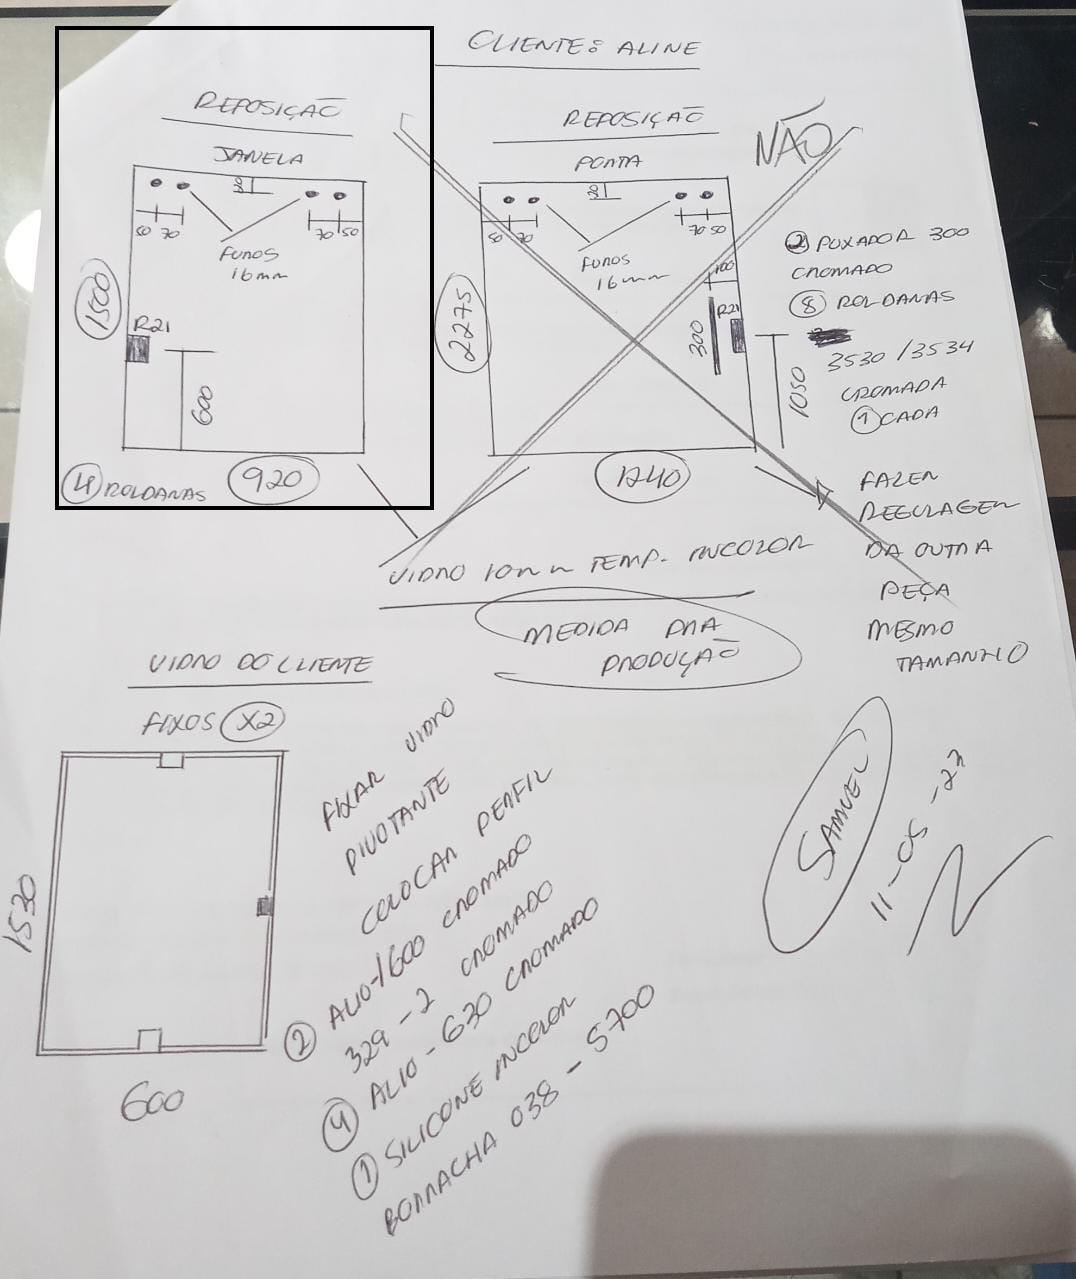 CLIENTE: ALINE
REPOSIÇÃO
JANELA
50 70
70 50
FUROS
16mm
1500
R21
600
④ ROLDANAS
920
REPOSIÇÃO
PORTA
NÃO
50 70
70 50
FUROS
16mm
100
2275
300
R21
1050
1240
② PUXADOR 300
CROMADO
⑧ ROLDANAS
3530 / 3534
CROMADA
① CADA
FAZER
REGULAGEM
DA OUTRA
PEÇA
MESMO
TAMANHO
VIDRO 10mm TEMP. INCOLOR
MEDIDA PRA
PRODUÇÃO
VIDRO DO CLIENTE
FIXOS X2
1530
600
FIXAR VIDRO
PIVOTANTE
COLOCAR PERFIL
② AL10-1600 CROMADO
329 - 2 CROMADO
④ AL10 - 630 CROMADO
① SILICONE INCOLOR
BORRACHA 038 - 5700
SAMUEL
11-05-23